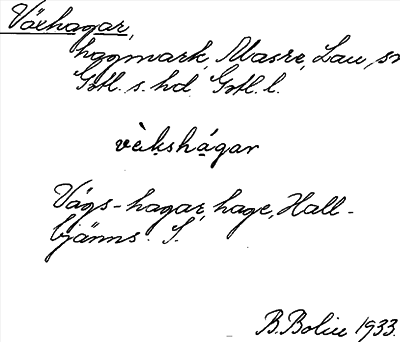 Växhagar,
hagmark, Masre, Lau, sn
Gotl. s. hd. Gotl. l.
vèkshágar
Vägs-hagar, hage, Hall-
bjänns. S.
B. Bolin 1933.